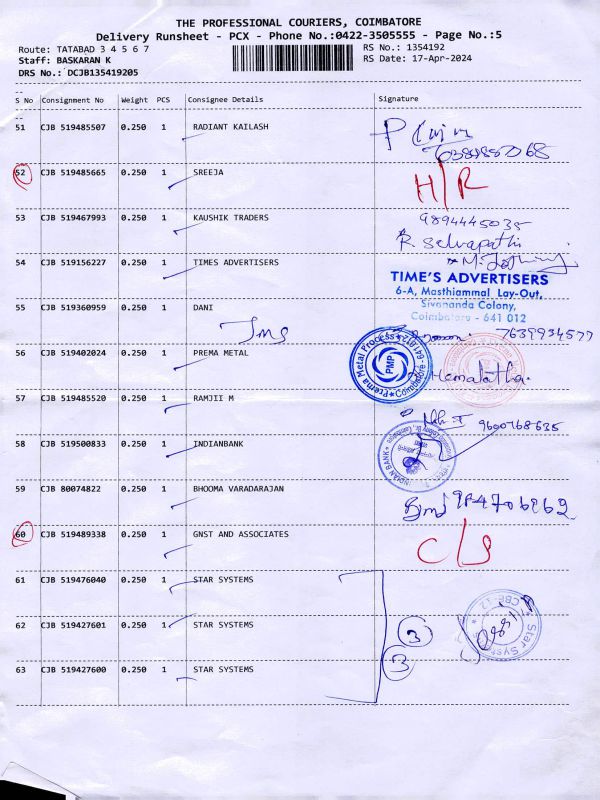 THE PROFESSIONAL COURIERS, COIMBATORE
Delivery Runsheet - PCX - Phone No.:0422-3505555 - Page No.:5
Route: TATABAD 3 4 5 6 7
RS No.: 1354192
Staff: BASKARAN K
RS Date: 17-Apr-2024
DRS No.: DCJB135419205
S No Consignment No Weight PCS Consignee Details Signature
51 CJB 519485507 0.250 1 RADIANT KAILASH
52 CJB 519485665 0.250 1 SREEJA H/R
53 CJB 519467993 0.250 1 KAUSHIK TRADERS 9894445035
R. Selvapathi
54 CJB 519156227 0.250 1 TIMES ADVERTISERS
TIME'S ADVERTISERS
6-A, Masthiammal Lay-Out,
Sivananda Colony,
Coimbatore - 641 012
55 CJB 519360959 0.250 1 DANI 7639934577
56 CJB 519402024 0.250 1 PREMA METAL Hemalatha.
Prema Metal Process
Coimbatore - 641 012
PMP
57 CJB 519485520 0.250 1 RAMJII M 9600768635
58 CJB 519500833 0.250 1 INDIANBANK
INDIAN BANK
59 CJB 80074822 0.250 1 BHOOMA VARADARAJAN
60 CJB 519489338 0.250 1 GNST AND ASSOCIATES
61 CJB 519476040 0.250 1 STAR SYSTEMS
62 CJB 519427601 0.250 1 STAR SYSTEMS 3
Star Systems
CBE-12
63 CJB 519427600 0.250 1 STAR SYSTEMS